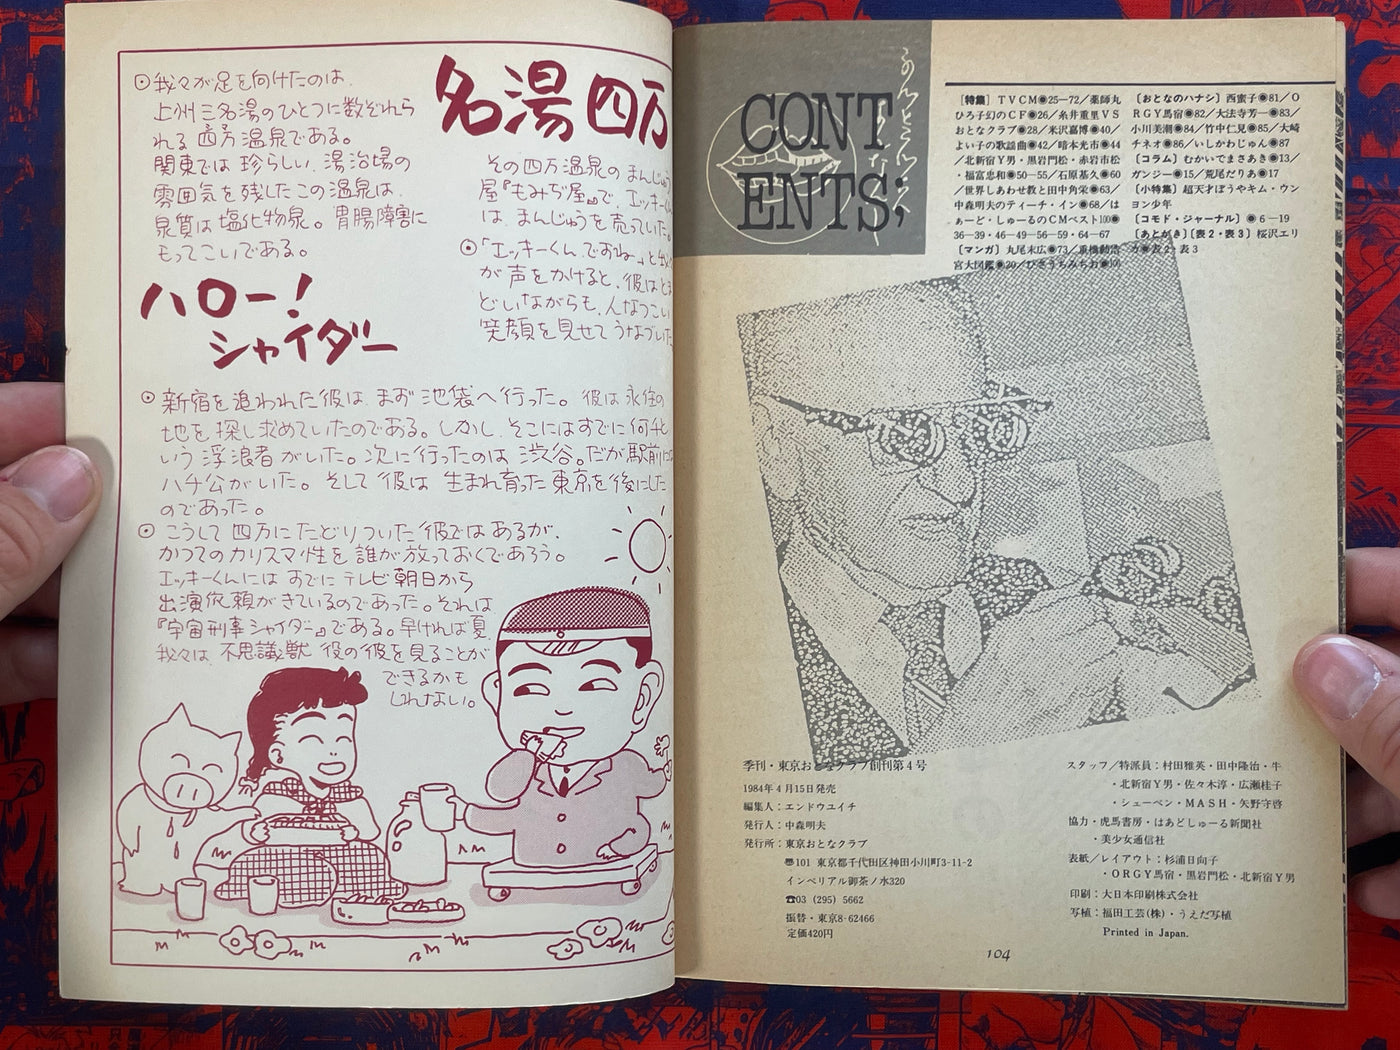 名湯 四万
⊙我々が足を向けたのは、
上州三名湯のひとつに数ぞれら
れる四万温泉である。
関東では珍らしい、湯治場の
雰囲気を残したこの温泉は、
泉質は塩化物泉。胃腸障害に
もってこいである。
その四万温泉のまんじゅう
屋『もみぢ屋』で、エッキーくん
は、まんじゅうを売っていた。
⊙「エッキーくん、ですね」と
が声をかけると、彼はとま
どいながらも、人なつこい
笑顔を見せてうなづいた
ハロー!
シャイダー
⊙新宿を追われた彼は、まず池袋へ行った。彼は永住の
地を探し求めていたのである。しかし、そこにはすでに何千と
いう浮浪者がいた。次に行ったのは渋谷。だが駅前に
ハチ公がいた。そして彼は生まれ育った東京を後にした
のであった。
⊙こうして四万にたどりついた彼ではあるが、
かつてのカリスマ性を誰が放っておくであろう。
エッキーくんにはすでにテレビ朝日から
出演依頼がきているのであった。それは
『宇宙刑事シャイダー』である。早ければ夏、
我々は、不思議獣役の彼を見ることが
できるかも
しれない。
CONT
ENTS;
［特集］TVCM◉25―72／薬師丸
ひろ子幻のCF◉26／糸井重里VS
おとなクラブ◉28／米沢嘉博◉40／
よい子の歌謡曲◉42／暗本光市◉44
／北新宿Y男・黒岩門松・赤岩市松
・福富忠和◉50―55／石原基久◉60
／世界しあわせ教と田中角栄◉63／
中森明夫のティーチ・イン◉68／は
ぁーど・しゅーるのCMベスト100◉
36―39・46―49―56―59・64―67
［マンガ］丸尾末広◉73／重機動浩
宮大図鑑◉20／ひさうちみちお◉101
［おとなのハナシ］西蜜子◉81／O
RGY馬宿◉82／大法寺芳一◉83／
小川美潮◉84／竹中仁見◉85／大崎
チネオ◉86／いしかわじゅん◉87
［コラム］むかいでまさあき◉13／
ガンジー◉15／荒尾だりあ◉17
［小特集］超天才ぼうやキム・ウン
ヨン少年
［コモド・ジャーナル］◉6―19
［あとがき］［表2・表3］桜沢エリ
カ◉表2・表3
季刊・東京おとなクラブ創刊第4号
1984年4月15日発売
編集人：エンドウユイチ
発行人：中森明夫
発行所：東京おとなクラブ
〠101 東京都千代田区神田小川町3-11-2
インペリアル御茶ノ水320
☎03 (295) 5662
振替・東京8-62466
定価420円
スタッフ／特派員：村田雅英・田中隆治・牛
・北新宿Y男・佐々木淳・広瀬桂子
・シューベン・MASH・矢野守啓
協力・虎馬書房・はあどしゅーる新聞社
・美少女通信社
表紙／レイアウト：杉浦日向子
・ORGY馬宿・黒岩門松・北新宿Y男
印刷：大日本印刷株式会社
写植：福田工芸(株)・うえだ写植
Printed in Japan.
104